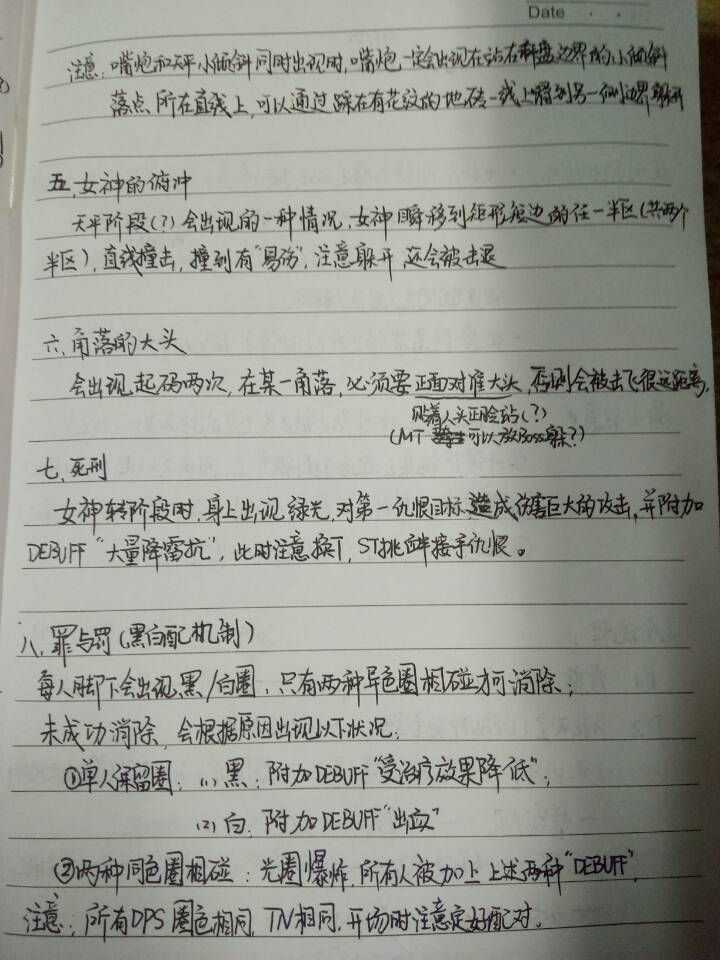 Date
注意：嘴炮和天平小倾斜同时出现时，嘴炮一定会出现在站在 边界的小倾斜
落点所在直线上，可以通过踩在有花纹的地砖一线上 另一侧边界躲开
五、女神的俯冲
天平阶段(?)会出现的一种情况，女神瞬移到矩形短边的任一半区(共两个
半区)，直线撞击，撞到有"易伤"，注意躲开，还会被击退
六、角落的大头
会出现起码两次，在某一角落，必须要正面对准大头，否则会被击飞很远距离，
贴着人头正脸站(?)
(MT 可以放Boss躲?)
七、死刑
女神转阶段时，身上出现绿光，对第一仇恨目标造成伤害巨大的攻击，并附加
DEBUFF"大量降雷抗"，此时注意换T，ST挑衅接手仇恨。
八、罪与罚(黑白配机制)
每人脚下会出现黑/白圈，只有两种异色圈相碰才可消除；
未成功消除，会根据原因出现以下状况：
①单人保留圈：(1)黑：附加DEBUFF"受治疗效果降低"；
(2)白：附加DEBUFF"出血"
②两种同色圈相碰：光圈爆炸，所有人被加上上述两种"DEBUFF"，
注意：所有DPS圈色相同，TN相同，开场时注意定好配对。